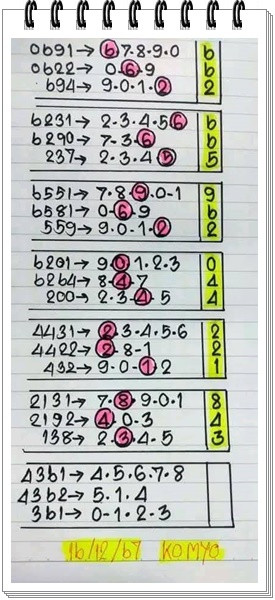 0691→ 6·7·8·9·0 6
0622→ 0·6·9 6
694→ 9·0·1·2 2
6231→ 2·3·4·5·6 6
6290→ 7·3·6 6
237→ 2·3·4·5 5
6551→ 7·8·9·0·1 9
6581→ 0·6·9 6
559→ 9·0·1·2 2
6201→ 9·0·1·2·3 0
6264→ 8·4·7 4
200→ 2·3·4·5 4
4431→ 2·3·4·5·6 2
4422→ 2·8·1 2
432→ 9·0·1·2 1
2131→ 7·8·9·0·1 8
2192→ 4·0·3 4
138→ 2·3·4·5 3
4361→ 4·5·6·7·8
4362→ 5·1·4
361→ 0·1·2·3
16/12/67 KOMYO